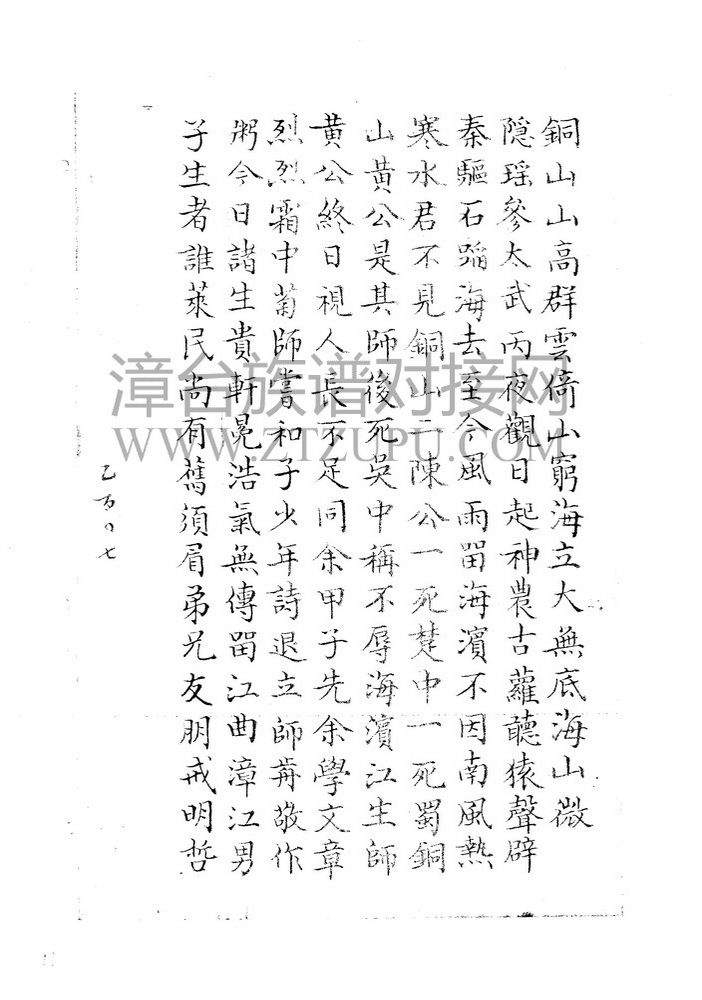 銅山山高群雲倚山窮海立大無底海山微
隱瑶參太武丙夜觀日起神農古蘿聽猿聲辟
秦驅石蹈海去至今風雨畱海濱不因南風熱
寒水君不見銅山二陳公一死楚中一死蜀銅
山黃公是其師後死吳中稱不辱海濱江生師
黃公終日視人長不足同余甲子先余學文章
烈烈霜中菊師嘗和子少年詩退立師前敬作
粥今日諸生貴軒冕浩氣無傳畱江曲漳江男
子生者誰萊民尚有舊須眉弟兄友朋戒明哲
乙方〇七
漳台族谱对接网
WWW.ZTZUPU.COM